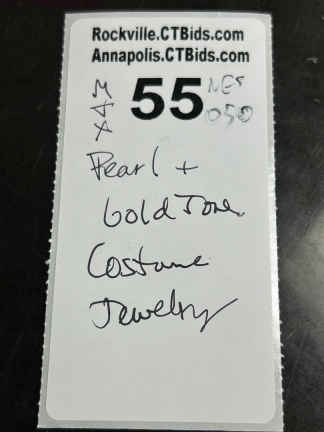 Rockville.CTBids.com
Annapolis.CTBids.com
55
050
Pearl +
Gold Tone
Costume
Jewelry